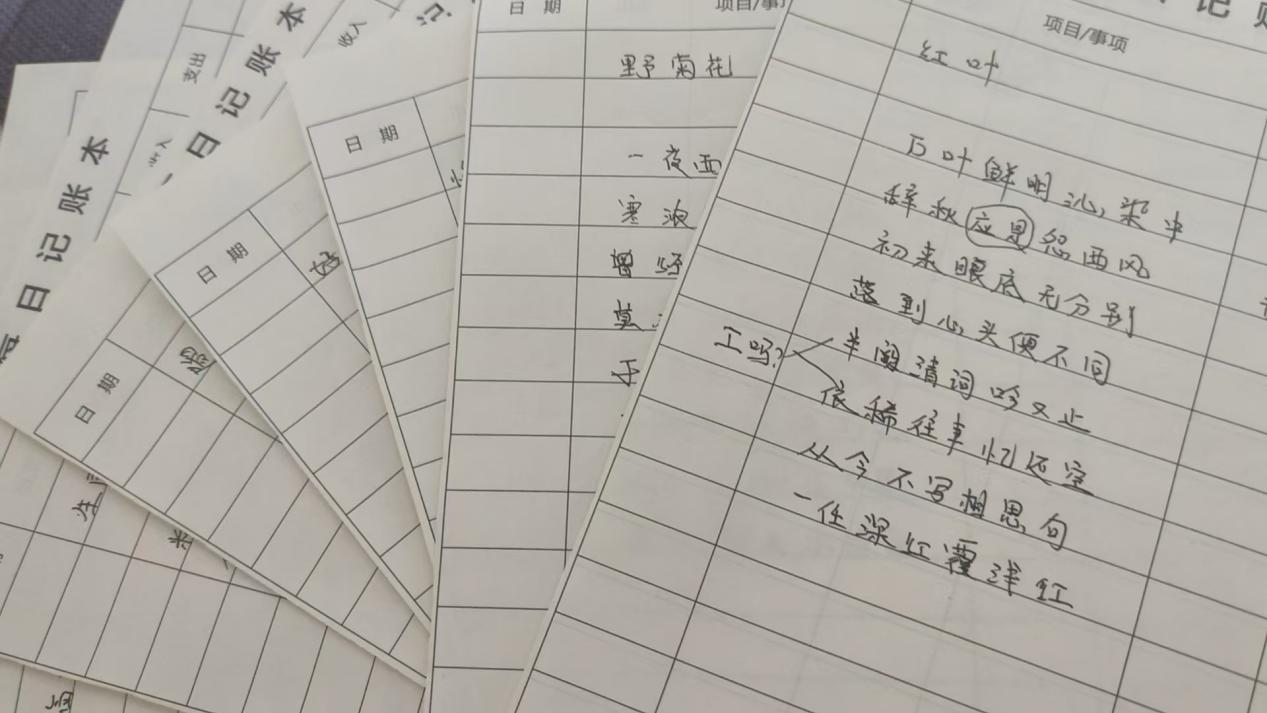 日 记 账 本
支出
收入
日 记 账 本
收入
日 期
日 期
日 期
日 期
项目/事
野菊花
一夜西
寒波
曾经
莫
记
项目/事项
红叶
万叶鲜明沁染中
辞秋应是怨西风
初来眼底无分别
落到心头便不同
工吗?
半阕清词吟又止
依稀往事忆还空
从今不写相思句
一任深红覆浅红